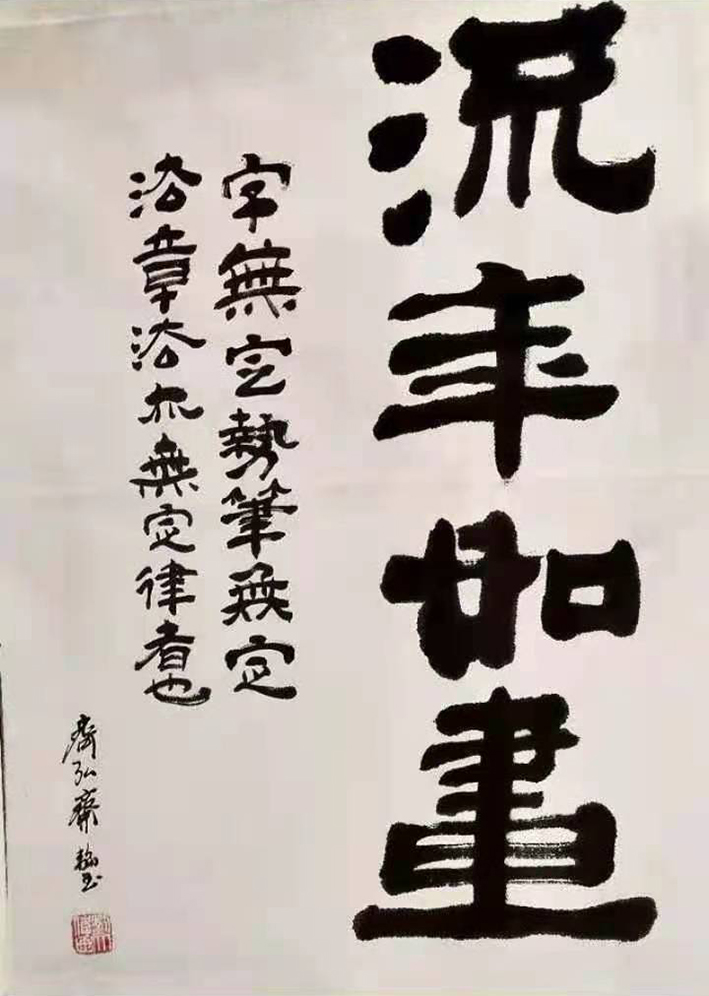 流年如畫
字無定勢筆無定
法章法亦無定律者也